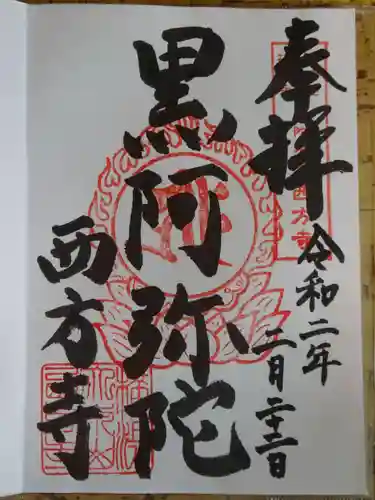 奉拝
令和二年
二月二十二日
黒阿弥陀
西方寺